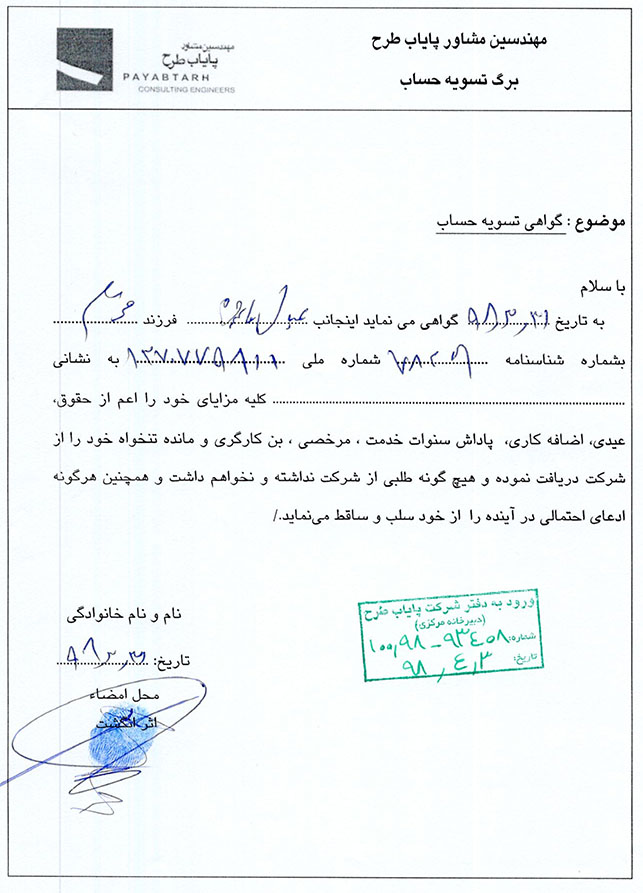 مهندسین مشاور پایاب طرح
برگ تسویه حساب
مهندسین مشاور
پایاب طرح
PAYABTARH
CONSULTING ENGINEERS
موضوع : گواهی تسویه حساب
با سلام
به تاریخ ۹۸,۳,۳۱ گواهی می نماید اینجانب فرزند
بشماره شناسنامه شماره ملی به نشانی
کلیه مزایای خود را اعم از حقوق،
عیدی، اضافه کاری، پاداش سنوات خدمت ، مرخصی ، بن کارگری و مانده تنخواه خود را از
شرکت دریافت نموده و هیچ گونه طلبی از شرکت نداشته و نخواهم داشت و همچنین هرگونه
ادعای احتمالی در آینده را از خود سلب و ساقط می‌نماید./
ورود به دفتر شرکت پایاب طرح
(دبیرخانه مرکزی)
شماره: ۱۰۰,۹۸-۹۳۴۰۸
تاریخ: ۹۸,۴,۳
نام و نام خانوادگی
تاریخ: ۹۸,۳,۳۱
محل امضاء
اثر انگشت